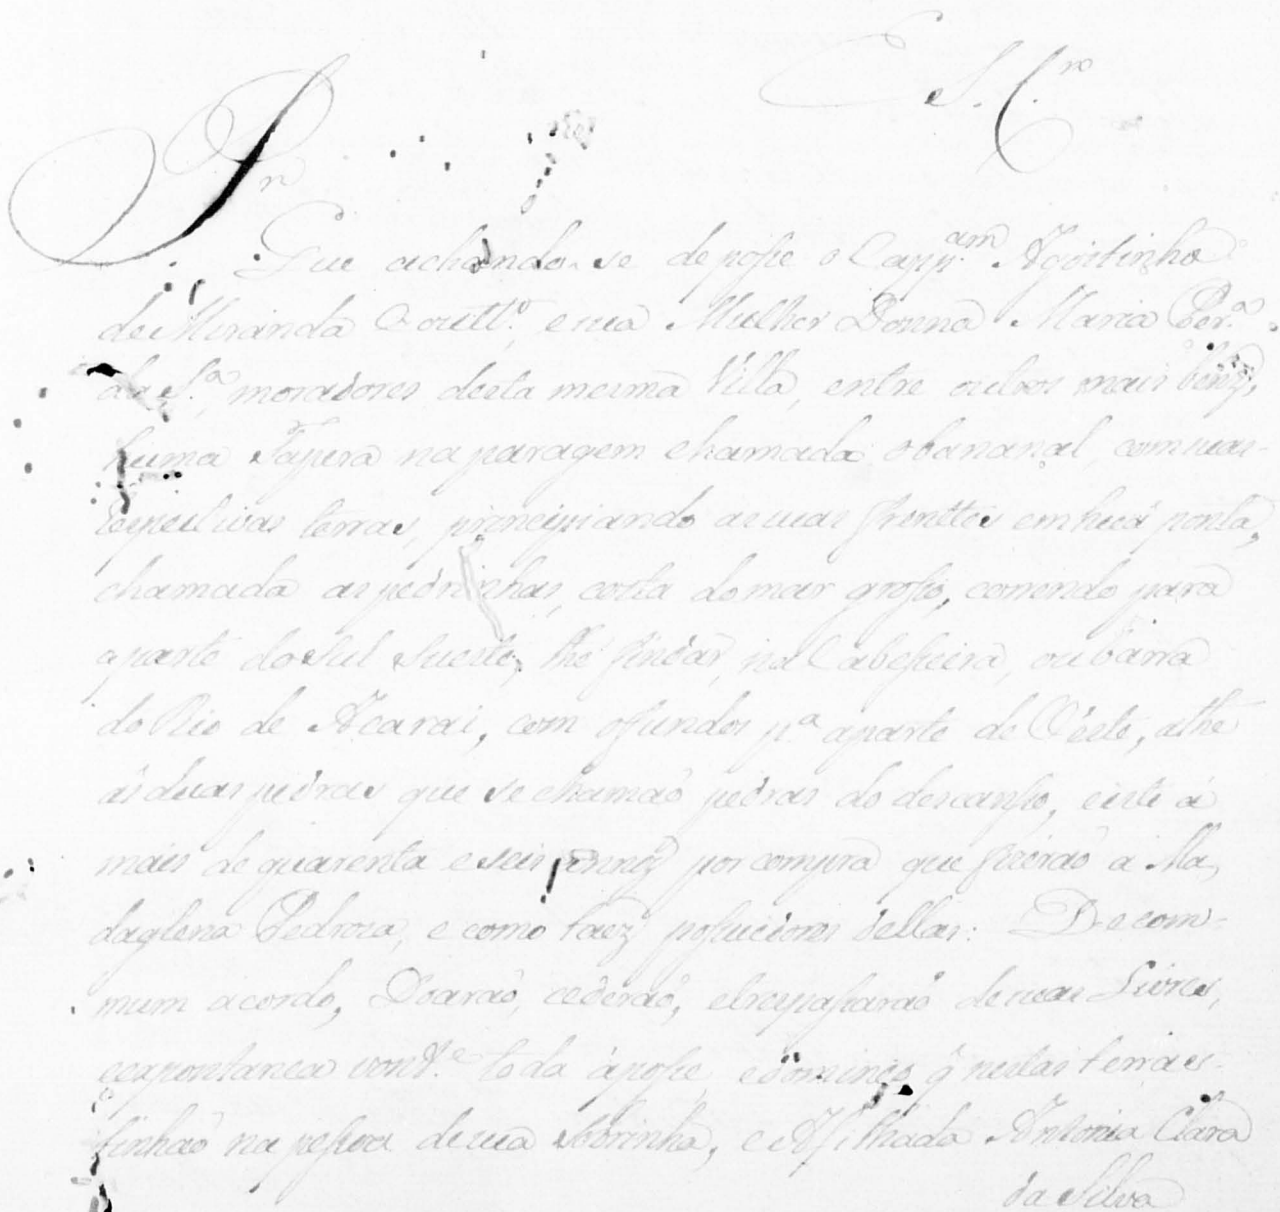 E S. C.ro
P.r
Que achando-se de posse o Capp.am Agostinho
de Miranda Coutt.o, e sua Mulher Donna Maria Per.a
da S.a, moradores desta mesma Villa, entre outros mais benz,
huma Tapera na paragem chamada o bananal, com suas
respectivas terras, principiando as suas frenttes em huã ponta,
chamada as pedrinhas, costa do mar grosso, correndo para
a parte do Sul Sueste, thé findar, na Cabesseira, ou barra
do Rio de Acarai, com os fundos p.a a parte do Oéste, athe
ás duas pedras que se chamaõ pedras do descanso, e isto á
mais de quarenta e seis annoz por compra que fizeraõ a Ma,
daglena Pedroza, e como taez possuidores dellas: De com-
mum acordo, Doaraõ, cederaõ, e trespassaraõ de suas Livres,
e expontanea vont.e toda a posse, e dominio q̃ nestas terras
tinhaõ na pessoa de sua Sobrinha, e Afilhada Antonia Clara
da Silva